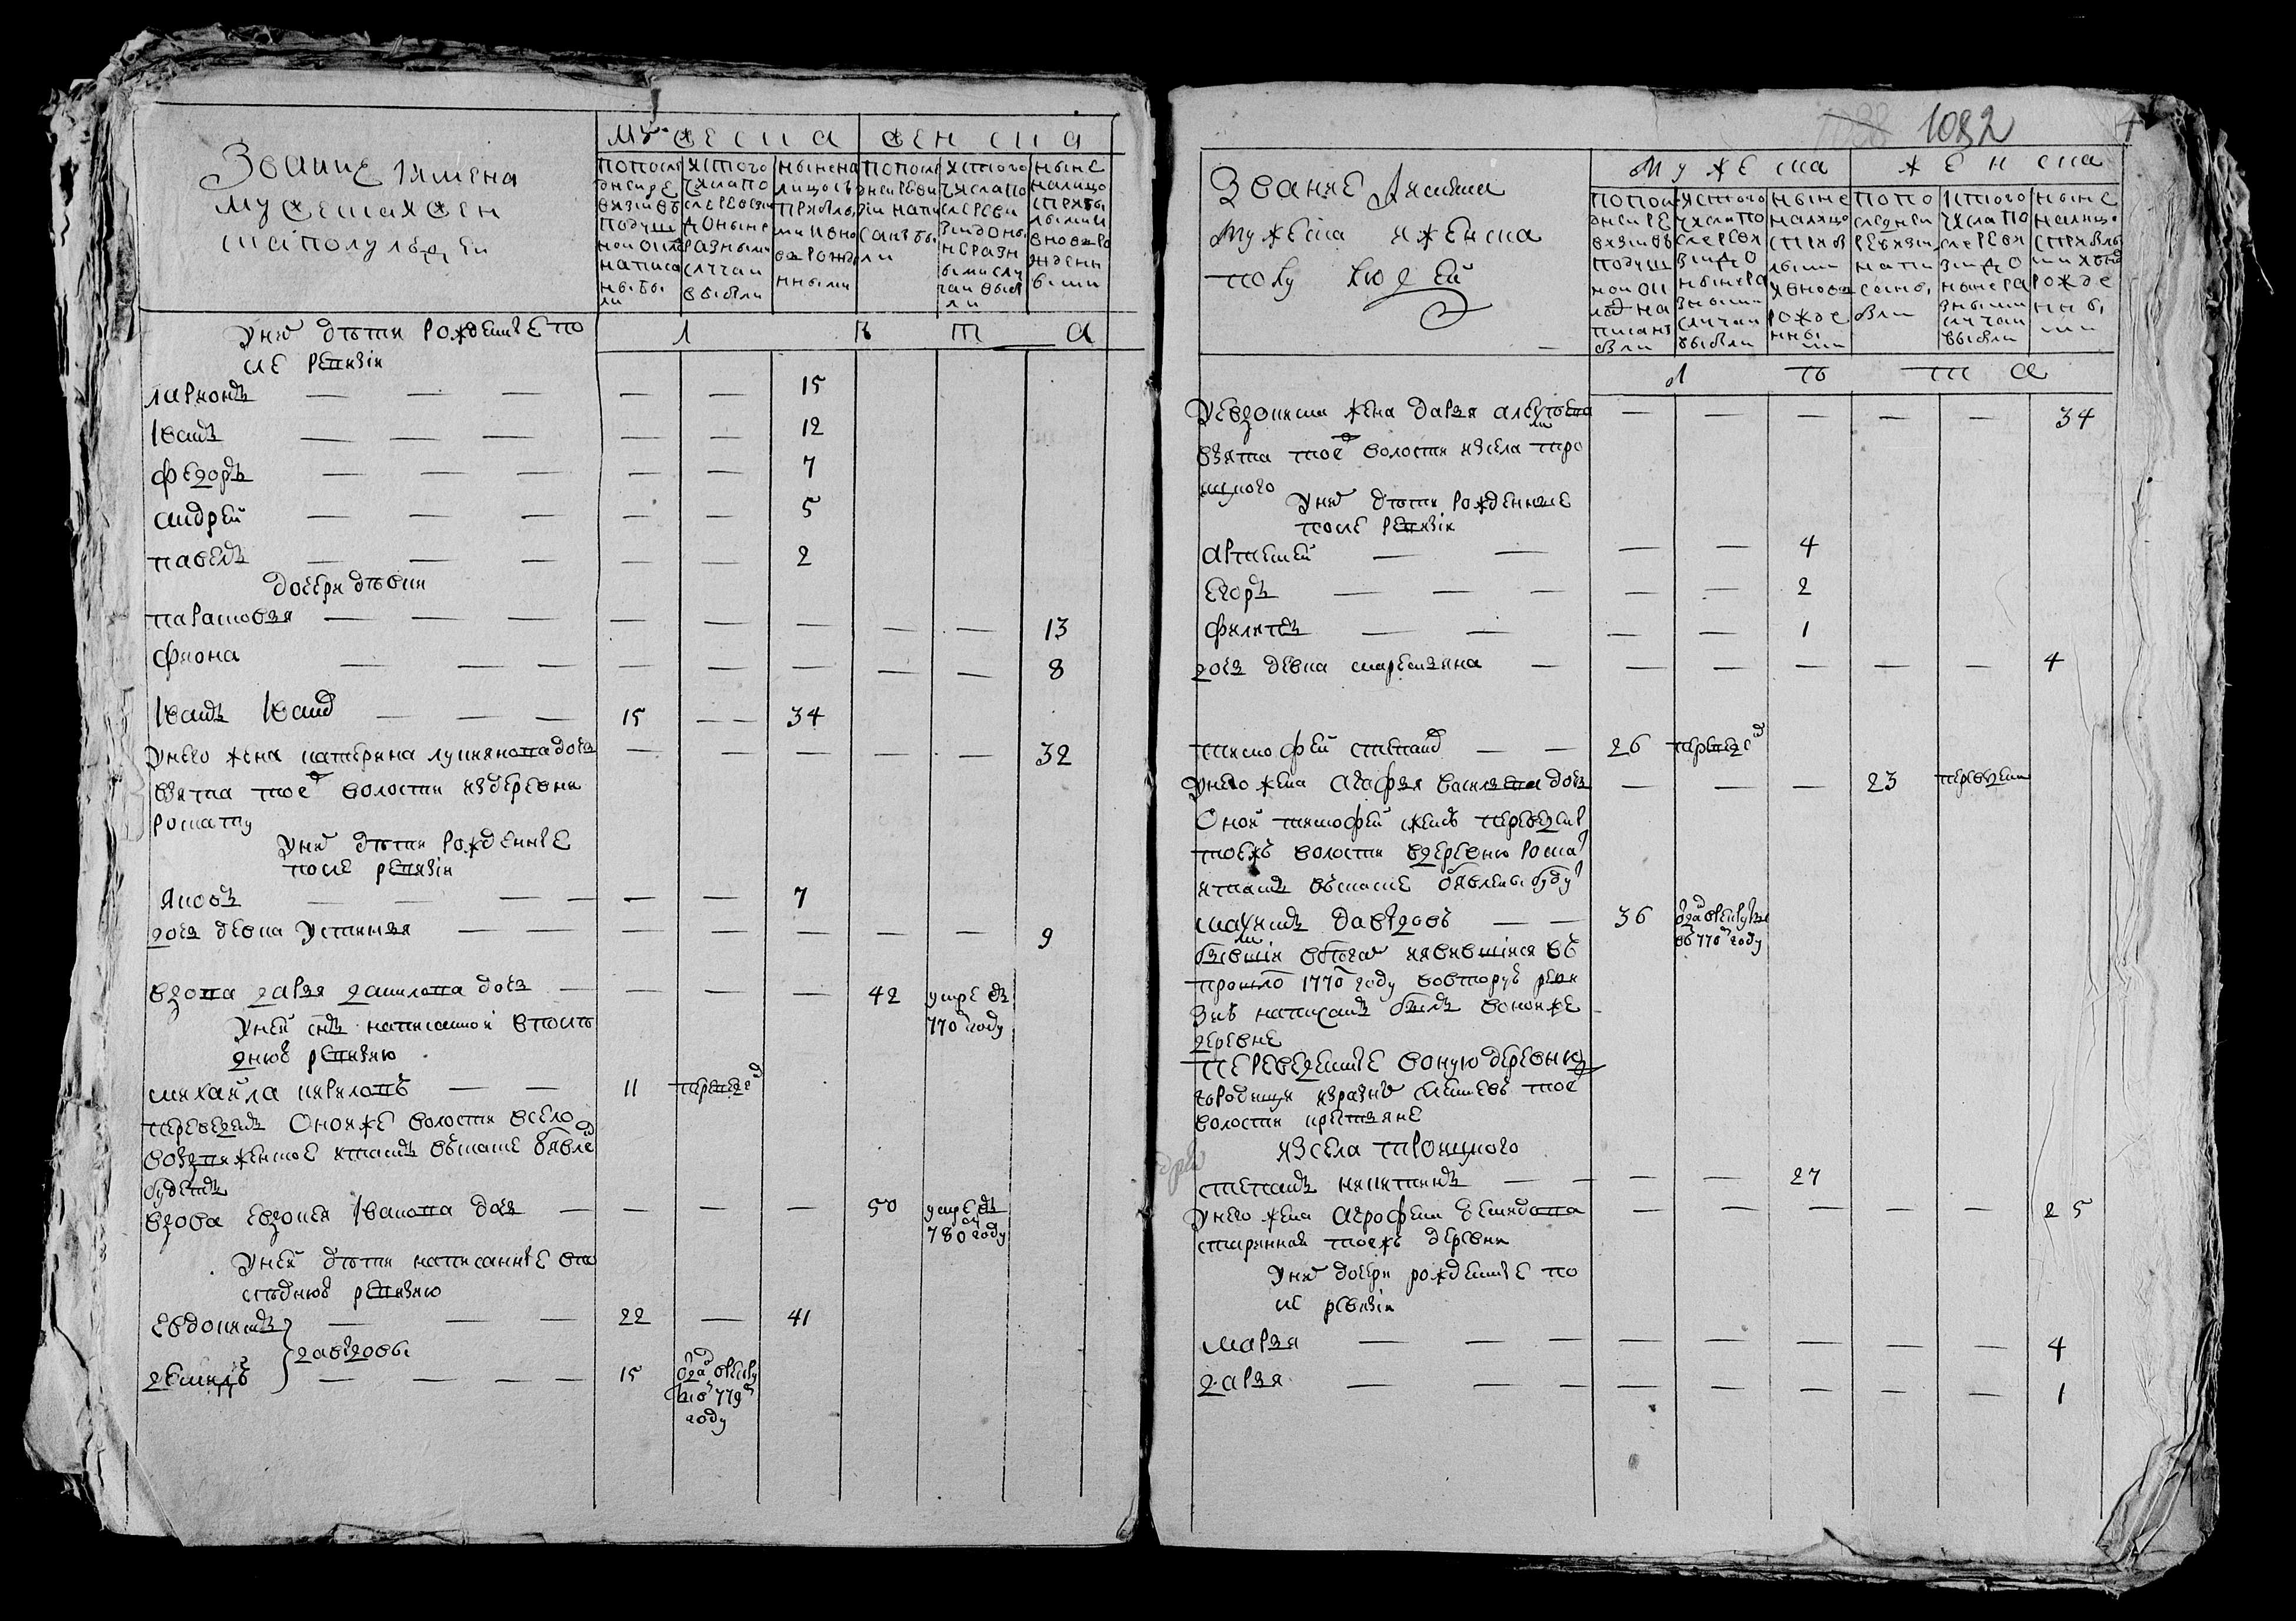 Звание имена
мужеска и жен
ска полу людей
мужеска женска
попосле дней ре визии въ подуш ной окла написа ны бы ли
ис того числа по сле ревизи доныне разными случаи выбыли
ныне на лицо съ прибылы ми и вно ва рожде нными
по после дней реви зіи напи саны бы ли
ис того числа по сле реви зии доны не разн ыми слу чаи выбы ли
ныне налицо с прибы лыми и вновь ро жденн ыми
лета
У них дѣти рожденые по
сле ревизіи
ларионъ — — — — — 15
Іванъ — — — — — 12
федоръ — — — — — 7
андрей — — — — — 5
павелъ — — — — — 2
дочери дѣвки
парасковья — — — — — — — — 13
фиона — — — — — — — — 8
Іванъ Іванов — — — 15 — — 34
У него жена катерина лукиянова дочь — — — — — 32
взята той волости из деревни
У них дѣти рожденные
после ревизіи
Яковъ — — — — — — 7
дочь девка Устинья — — — — — — — — 9
вдова дарья данилова дочь — — — — 42 умре въ
У ней снъ написанной в после 770м году
днюю ревизию
михайла кириловъ — — 11 переведе
переведенъ Оной же волости в село
воздвиженское и тамъ в сказке объявле
будетъ
вдова Евдокея Іванова дочь — — — — — 50 умре въ
780м году
У ней дѣти написанные в по
следнюю ревизию
Евдокимъ — — — 22 — 41
давыдовы
демидъ — — — — 15 отда в рекру
ты в 779м
году
1082
Звание и имена
мужеска и женска
полу людей
мужеска женска
попосле дней ре визии въ подуш ной ок лад на писаны были
ис того числа по сле реви зии до ныне ра зными случаи выбыли
ныне налицо с прибы лыми и вновь рожде нны ми
по по следней ревизи напи саны были
ис того числа по сле реви зии до ныне ра зными случаи выбыли
ныне налицо с прибылы ми и вно рожде нны ми
лета
У евдокима жена дарья алексеева — — — — — 34
взята той волости из села тро
ицкого
У них дѣти рожденные
после ревизіи
Артемей — — — — 4
Егоръ — — — — — 2
филипъ — — — — 1
дочь девка маремьяна — — — — — — — 4
тимофей степанов — — 26 переведе
У него жена агафья васильева дочь — — — 23 переведен
Оной тимофей и жена переведены
тоежъ волости в деревню
и тамъ в сказке объявлены буду
максимъ давыдовъ — — 36 отда в рекруты
въ 770м году
бывший в бегах и явившійся въ
прошлом 1770м году во второй реви
зии написанъ былъ в оной же
деревне
переведенные в оную деревню
городище из разных селениев той
волости крестьяне
из села троицкого
степанъ никитинъ — — — — 27
У него жена Аграфена демидова — — — — — 25
старинная тоежъ деревни
У них дочери рожденные по
сле ревизіи
марья — — — — — — — — 4
дарья — — — — — — — — 1